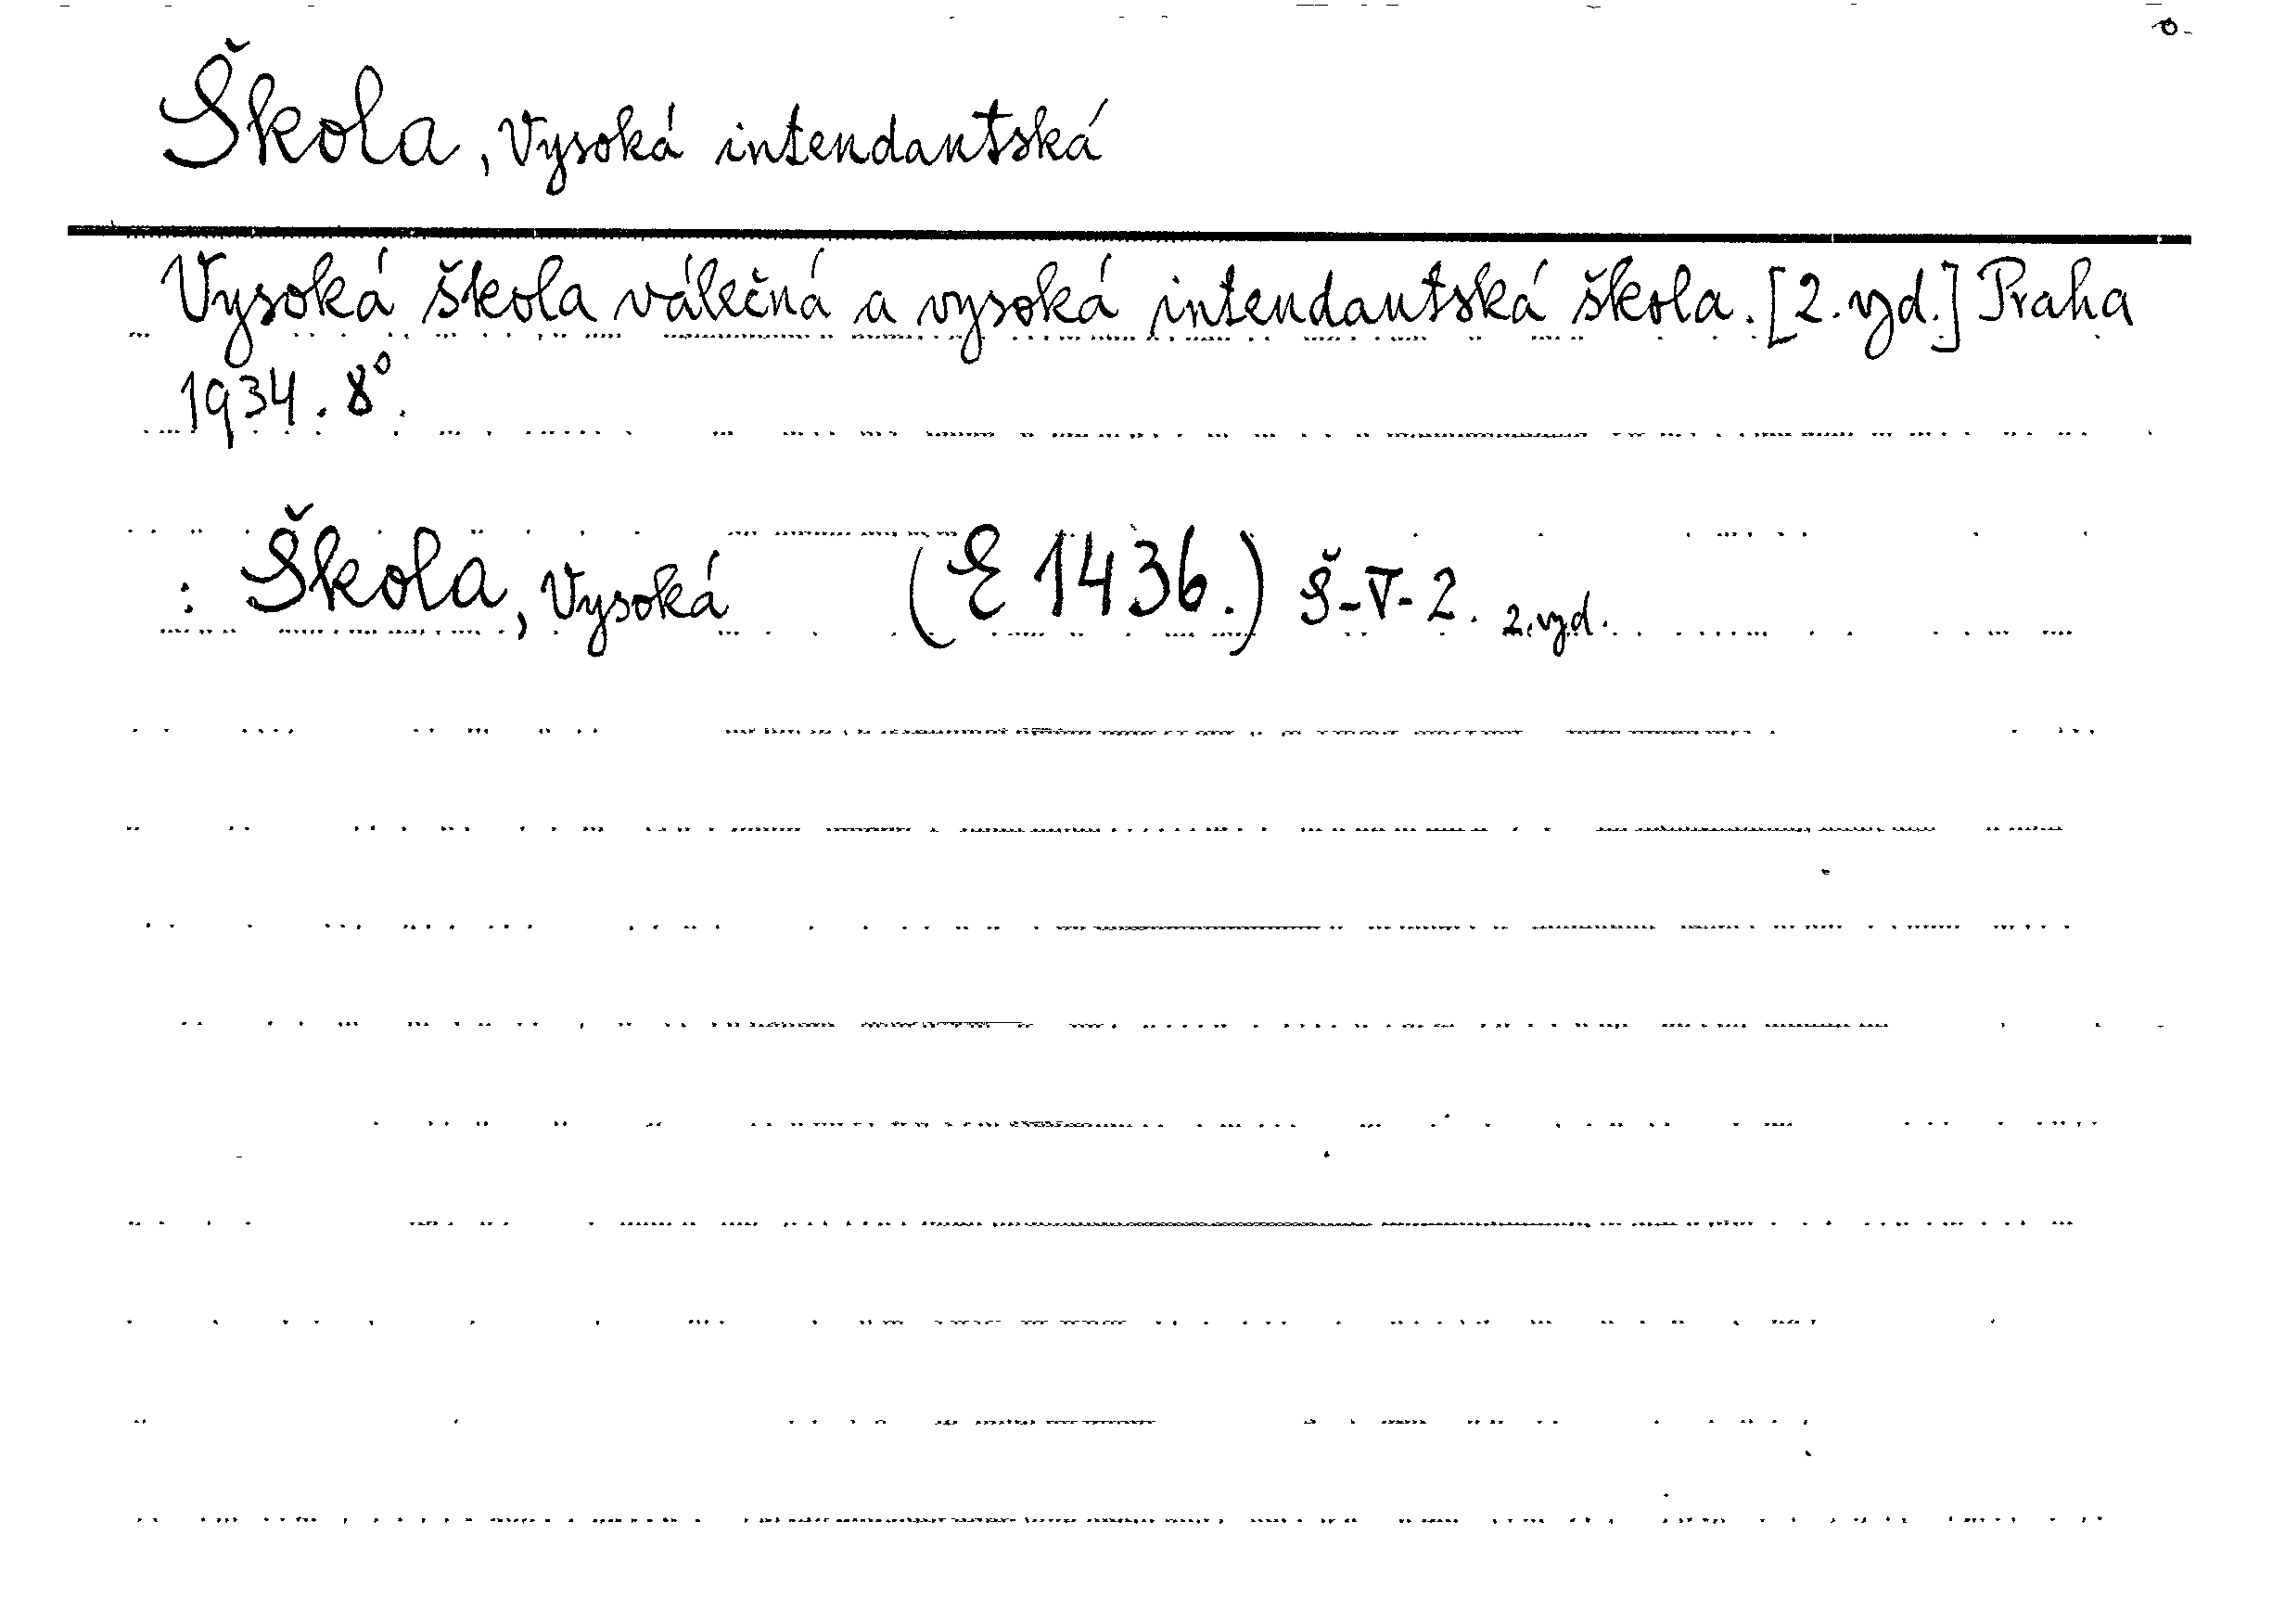 Škola, Vysoká intendantská
Vysoká škola válečná a vysoká intendantská škola. [2. vyd.] Praha
1934. 8°.
: Škola, Vysoká (E 1436.) Š-V-2. 2. vyd.